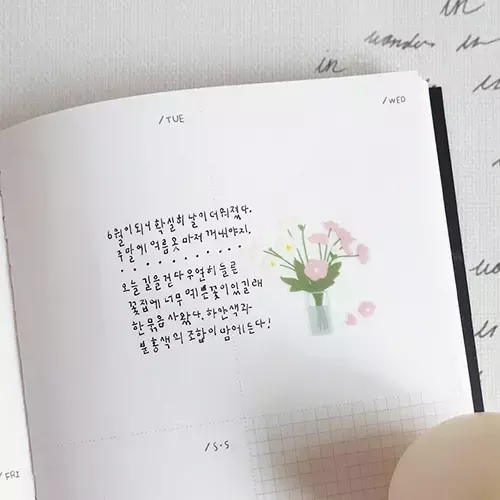 in
wander in
in
/TUE
/WED
6월이 되니 확실히 날이 더워졌다.
주말에 여름옷 마저 꺼내야지.
오늘 길을 걷다 우연히 들른
꽃집에 너무 예쁜 꽃이 있길래
한 묶음 사왔다. 하얀색과
분홍색의 조합이 맘에 든다!
/S·S
/FRI